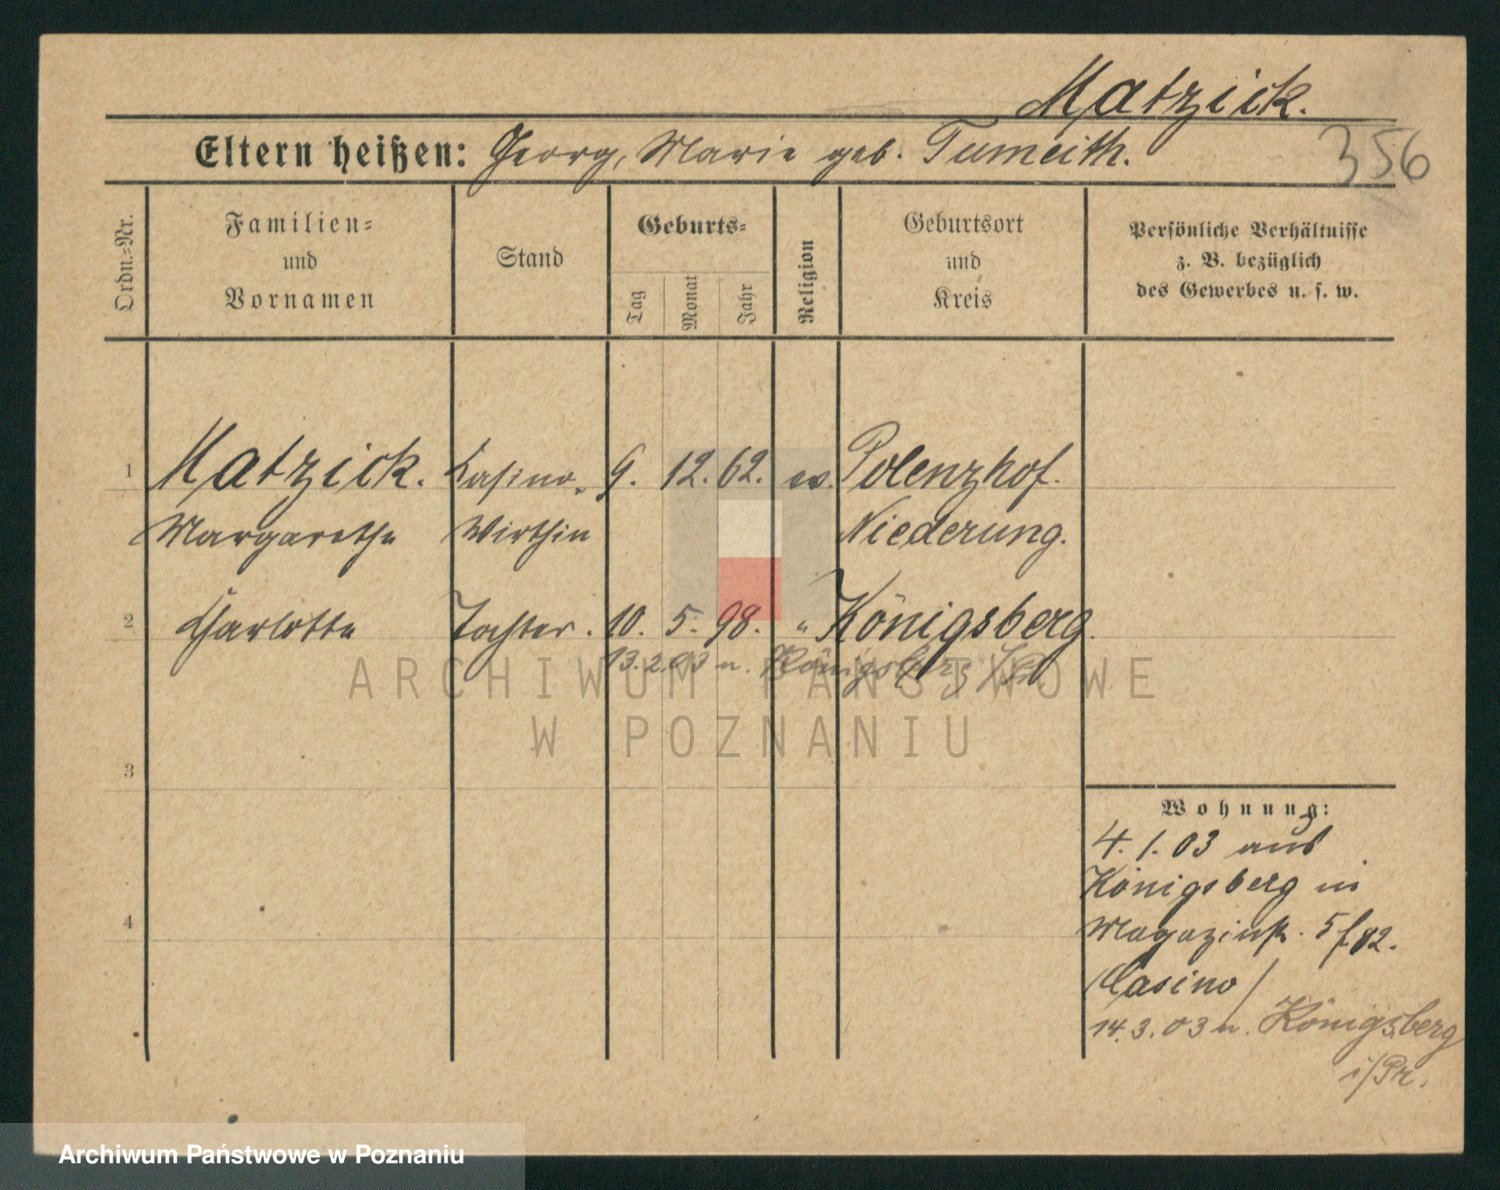 Matzick.
Eltern heißen: Georg, Marie geb. Tumeith.
356
Ordn.=Nr.
Familien=
und
Vornamen
Stand
Geburts=
Tag
Monat
Jahr
Religion
Geburtsort
und
Kreis
Persönliche Verhältnisse
z. B. bezüglich
des Gewerbes u. s. w.
1 Matzick. Kasino- 9. 12. 62. ev. Polenzhof.
Margarethe Wirthin Niederung.
2 Charlotte Tochter. 10. 5. 98. " Königsberg.
13.2.03 n. Königsberg i/Pr.
ARCHIWUM PAŃSTWOWE
W POZNANIU
3
Wohnung:
4. 1. 03 aus
Königsberg in
4
Magazinstr. 5
Casino
14.3.03 n. Königsberg
i/Pr.
Archiwum Państwowe w Poznaniu